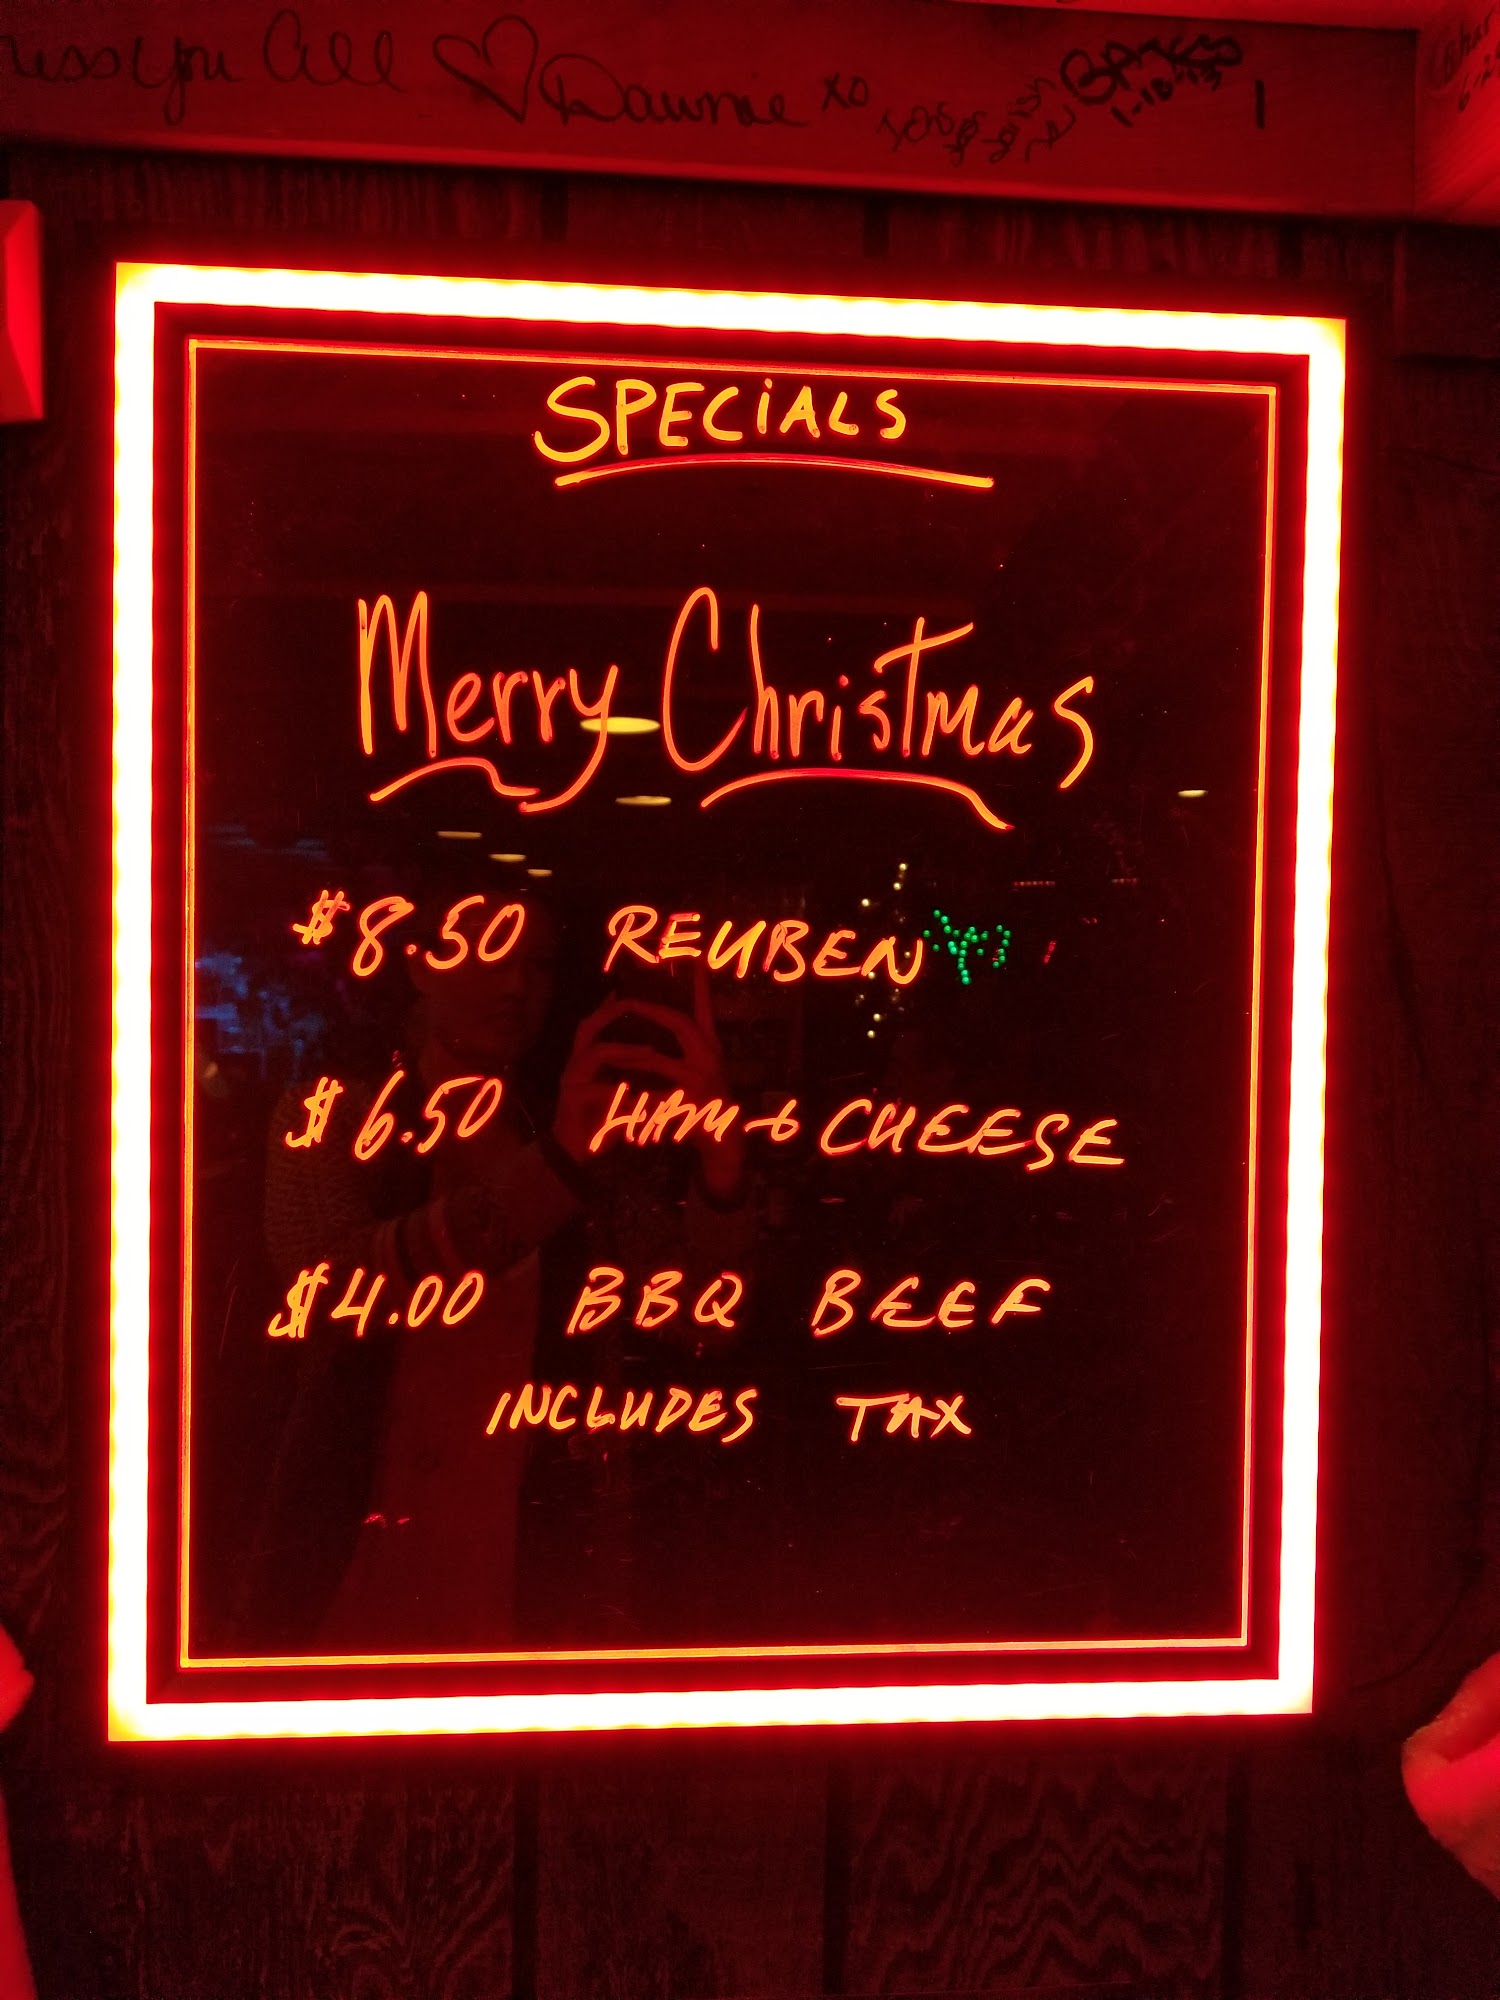 you all ♡ Dawnie xo
1-10-23
SPECiALS
Merry Christmas
$8.50 REUBEN
$6.50 HAM & CHEESE
$4.00 BBQ BEEF
INCLUDES TAX